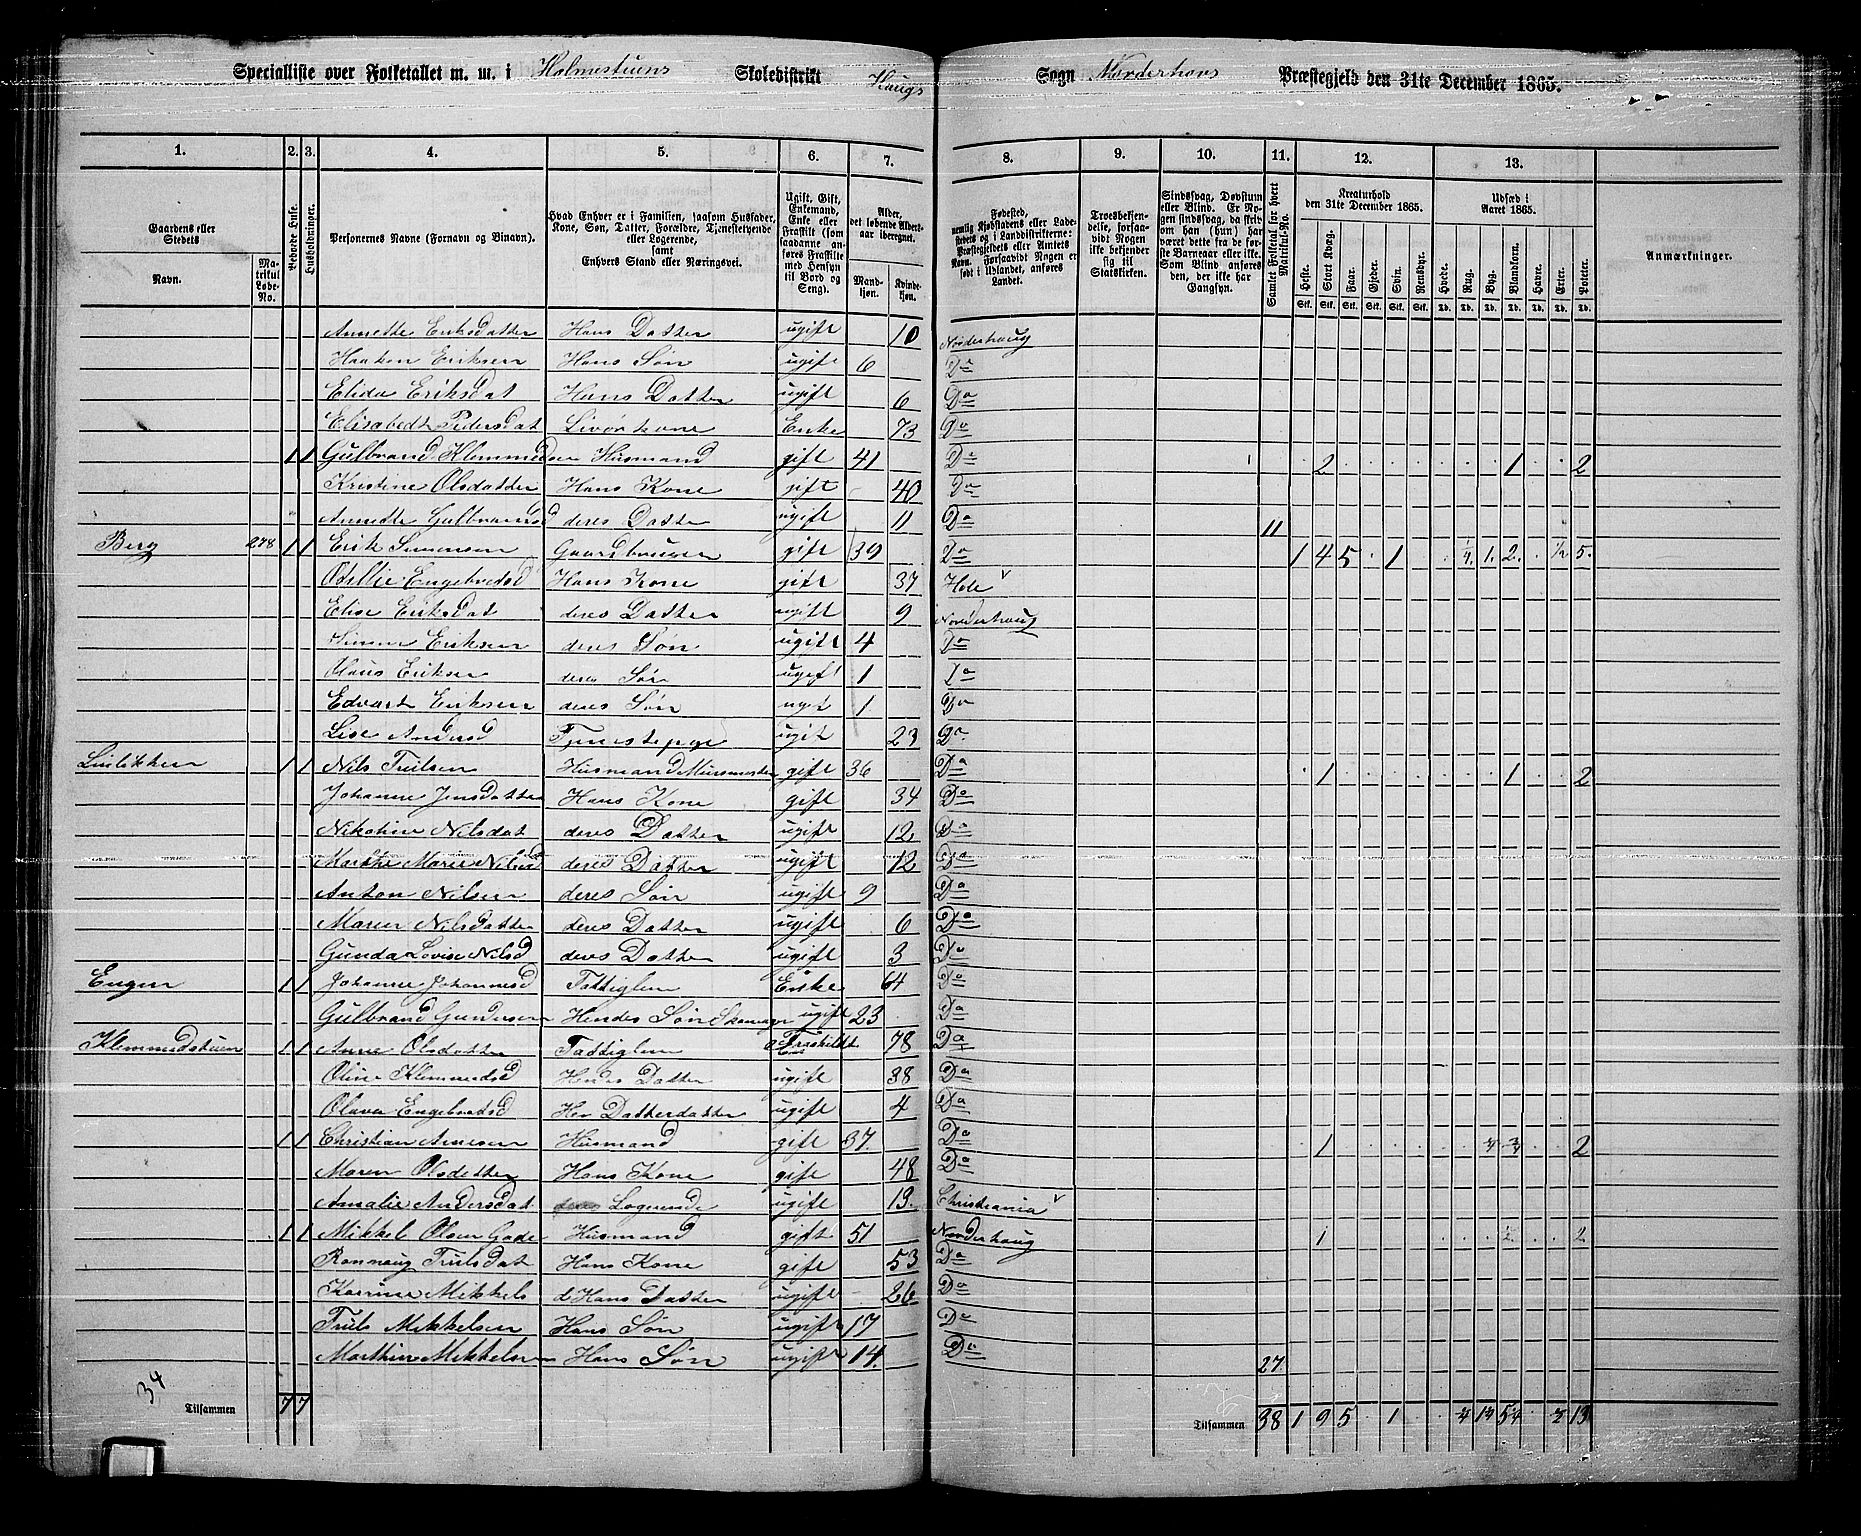 Specialliste over Folketallet m. m. i Holmestuens Skoledistrikt Haugs Sogn Nørderhovs Præstegjeld den 31te December 1865.
1. 2. 3. 4. 5. 6. 7. 8. 9. 10. 11. 12. 13.
Gaardens eller Stedets
Navn.
Matrikul Løbe-No.
Bebøede Huse.
Husholdninger.
Personernes Navne (Fornavn og Binavn).
Hvad Enhver er i Familien, saasom Husfader, Kone, Søn, Datter, Forældre, Tjenestetyende eller Logerende, samt Enhvers Stand eller Næringsvei.
Ugift, Gift, Enkemand, Enke eller Fraskilt (som saadanne anføres Fraskilte med Hensyn til Bord og Seng).
Alder, det løbende Aldersaar iberegnet.
Mandkjøn. Kvindekjøn.
Fødested, nemlig Kjøbstadens eller Ladestedets og i Landdistrikterne: Præstegjeldets eller Amtets Navn. Forsaavidt Nogen er født i Udlandet, anføres Landet.
Troesbekjendelse, forsaavidt Nogen ikke bekjender sig til Statskirken.
Sindssvag, Døvstum eller Blind. Er Nogen sindssvag, da skrives om han (hun) har været dette fra de første Barneaar eller ikke. Som Blind anføres den, der ikke har Gangsyn.
Samlet Folketal for hvert Matrikul-No.
Kreaturhold den 31te December 1865.
Heste. Stort Kvæg. Faar. Gjeder. Svin. Rensdyr.
Udsæd i Aaret 1865.
Hvede. Rug. Byg. Blandkorn. Havre. Erter. Poteter.
Anmærkninger.
Annette Eriksdatter Hans Datter ugift 10 Nørderhaug
Haaken Eriksen Hans Søn ugift 6 Do
Elida Eriksdat Hans Datter ugift 6 Do
Elisabedt Pedersdat Livørkone Enke 73 Do
1 1 Gulbrand Klemmedsen Husmand gift 41 Do 2 1 2
Kristine Olsdatter Hans Kone gift 40 Do
Annette Gulbrandsd deres Datter ugift 11 Do 11
Berg 278 1 1 Erik Simensen Gaardbruger gift 39 Do 1 4 5 1 1/4 1 2 1/2 5
Otillie Engebredsd Hans Kone gift 37 Hole
Elise Eriksdat deres Datter ugift 9 Nørderhaug
Simen Eriksen deres Søn ugift 4 Do
Olaus Eriksen deres Søn ugift 1 Do
Edvart Eriksen deres Søn ugt 1 Do
Lise Andersd Tjenestepge ugit 23 Do
Linlikken 1 1 Nils Trulsen Husmand Mursmester gift 36 Do 1 1 2
Johanne Jensdatter Hans Kone gift 34 Do
Nikoline Nilsdat deres Datter ugift 12 Do
Marthe Marie Nilsd deres Datter ugift 12 Do
Anton Nilsen deres Søn ugift 9 Do
Maren Nilsdatter deres Datter ugift 6 Do
Gunda Lovise Nilsd deres Datter ugift 3 Do
Engen 1 1 Johanne Johannesd Fattiglem Enke 64 Do
Gulbrand Gundersen Hendes Søn Skomager ugift 23 Do
Klemmedstuen 1 1 Anne Olsdatter Fattiglem Fraskildt 78 Do
Oline Klemmedsd Hendes Datter ugift 38 Do
Olava Engebredsd Hen Datterdatter ugift 4 Do
1 1 Christian Arnesen Husmand gift 37 Do 1 2
Maren Olsdatter Hans Kone gift 48 Do
Amalie Andersdat Logerende ugift 13 Christiania
1 1 Mikkel Olsen Gade Husmand gift 51 Nørderhaug 1 1/2 2
Rønnaug Trulsdat Hans Kone gift 53 Do
Karrine Mikkels d Hans Datter ugift 26 Do
Truls Mikkelsen Hans Søn ugift 17 Do
Marthin Mikkelsen Hans Søn ugift 14 Do 27
34
Tilsammen 7 7
Tilsammen 38 1 9 5 1 13